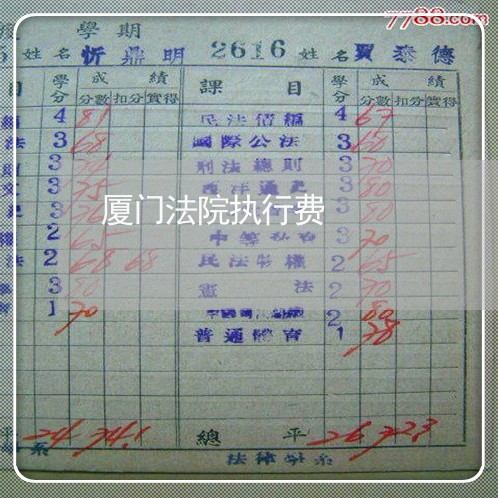 7788.com
學期
姓名忻鼎明 2616 姓名賈泰德
目 學分 成績 課目 學分 成績
分數 扣分 實得 分數 扣分 實得
4 81 民法債編 4 67
法 3 68 國際公法 3 60
3 刑法總則 3 70
3 75 西洋通史 3 80
3 3 80
厦门法院执行费
2 65 3 70
法 2 68 68 民法物權 2 65
3 80 憲法 2 70
1 70 2 80
普通體育 1 78
平 24 74.1 總平 26 72.3
系 法律學系